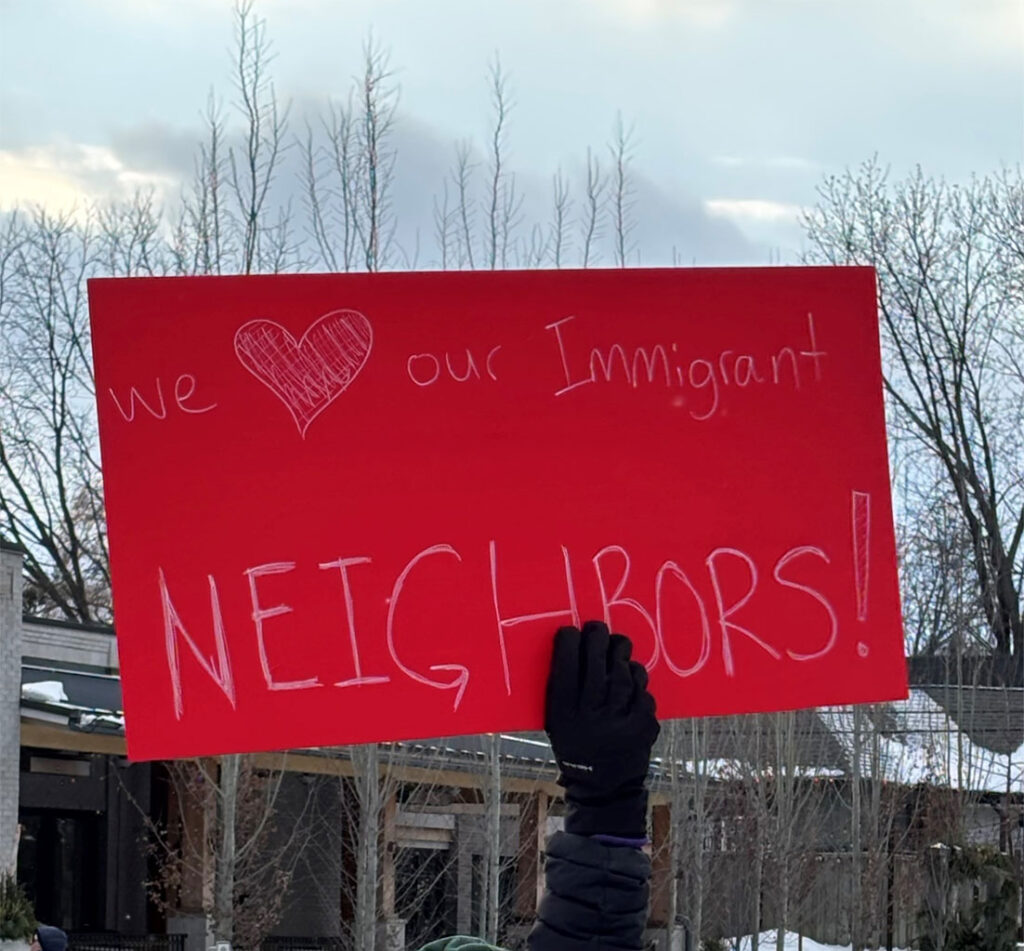 we ♥ our Immigrant
NEIGHBORS!